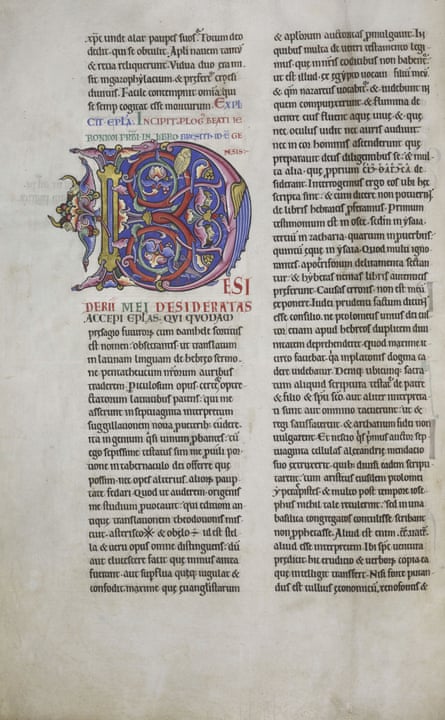 xp̄c unde alat paupes suos. Totum deo
dedit qui se obtulit. Apli navem tantū
& retia reliquerunt. Vidua duo era mi
sit in gazophylacium & prefert᷑ cresi
divitiis. Facile contempnit omia qui
se semp cogitat esse moriturum. EXPLI
CIT EPLA. INCIPIT PLOG᷑ BEATI IE
RONIMI PRBI IN LIBRO BRESITH ID Ē GE
NESIS:-
DESI
DERII MEI DESIDERATAS
ACCEPI EPLAS. QVI QVODAM
presagio futuroꝝ cum danihele sortitus
est nomen. obsecrantis ut translatum
in latinam linguam de hebreo sermo
ne pentatheucum nr̄orum auribus
traderem. Piculosum opus certe. & obtre
ctatorum latratibus patens. qui me
asserunt in septuaginta interpretum
suggillationem nova p veteribus cudere.
ita ingenium q̄si vinum pbantes. cū
ego sepissime testatus sim me p virili por
tione in tabernaculo dei offerre que
possim. nec opes alterius. aliorū paup
tate fedari. Quod ut auderem. origenis
me studium pvocavit. qui editioni an
tique translationem theodotionis mis
cuit. asterisco ※ & obelo ÷ id est stel
la & veru opus omne distinguens. dū
aut elucescere facit que minus antea
fuerant. aut supflua queq; iugulat &
confodit. maxime que evangelistarum
& aploꝝum auctoritas pmulgavit. In
quibus multa de veteri testamento legi
mus. que in nr̄is codicibus non habent᷑.
ut est illud. ex egypto vocavi filiū meū.
& qm̄ nazareus vocabit᷑. & videbunt in
quem compunxerunt. & flumina de
ventre eius fluent aque vive. & que
nec oculus vidit nec auris audivit
nec in cor hominis ascenderunt que
preparavit deus diligentibus se. & mul
ta alia que pprium
siderant. Interrogemus ergo eos ubi hec
scripta sint. & cum dicere non potuerint.
de libris hebraicis pferamus. Primum
testimonium est in osee. scdm in ysaia.
tertiū in zacharia. quartum in pverbiis.
quintū eque in ysaia. Quod multi igno
rantes apocriforum deliramenta sectan
tur. & hyberas nenias libris autenticis
preferunt. Causas erroris non est meū
exponere. Iudei prudenti factum dicunt
esse consilio. ne ptolomeus unius dei cul
tor. etiam apud hebreos duplicem divi
nitatem deprehenderet. quod maxime id
circo faciebat. quia in platonis dogma ca
dere videbatur. Deniq; ubicumq; sacra
tum aliquid scriptura testat᷑ de patre
& filio & spū sc̄o aut aliter interpreta
ti sunt. aut omnino tacuerunt. ut &
regi satisfacerent. & archanum fidei non
vulgarent. Et nescio q̄s primus auctor sep
tuaginta cellulas alexandrie mendacio
suo extruxerit. quib; divisi eadem scripti
tarent. cum aristeus eiusdem ptolomei
yperaspistes & multo post tempore iose
phus nichil tale retulerint. sed in una
basilica congregatos contulisse scribant
non pphetasse. Aliud est enim
aliud esse interpretem. Ibi spc ventura
predicit. hic eruditio & verboꝝ copia ea
que intelligit transfert. Nisi forte putan
dus est tullius economicū xenofontis &